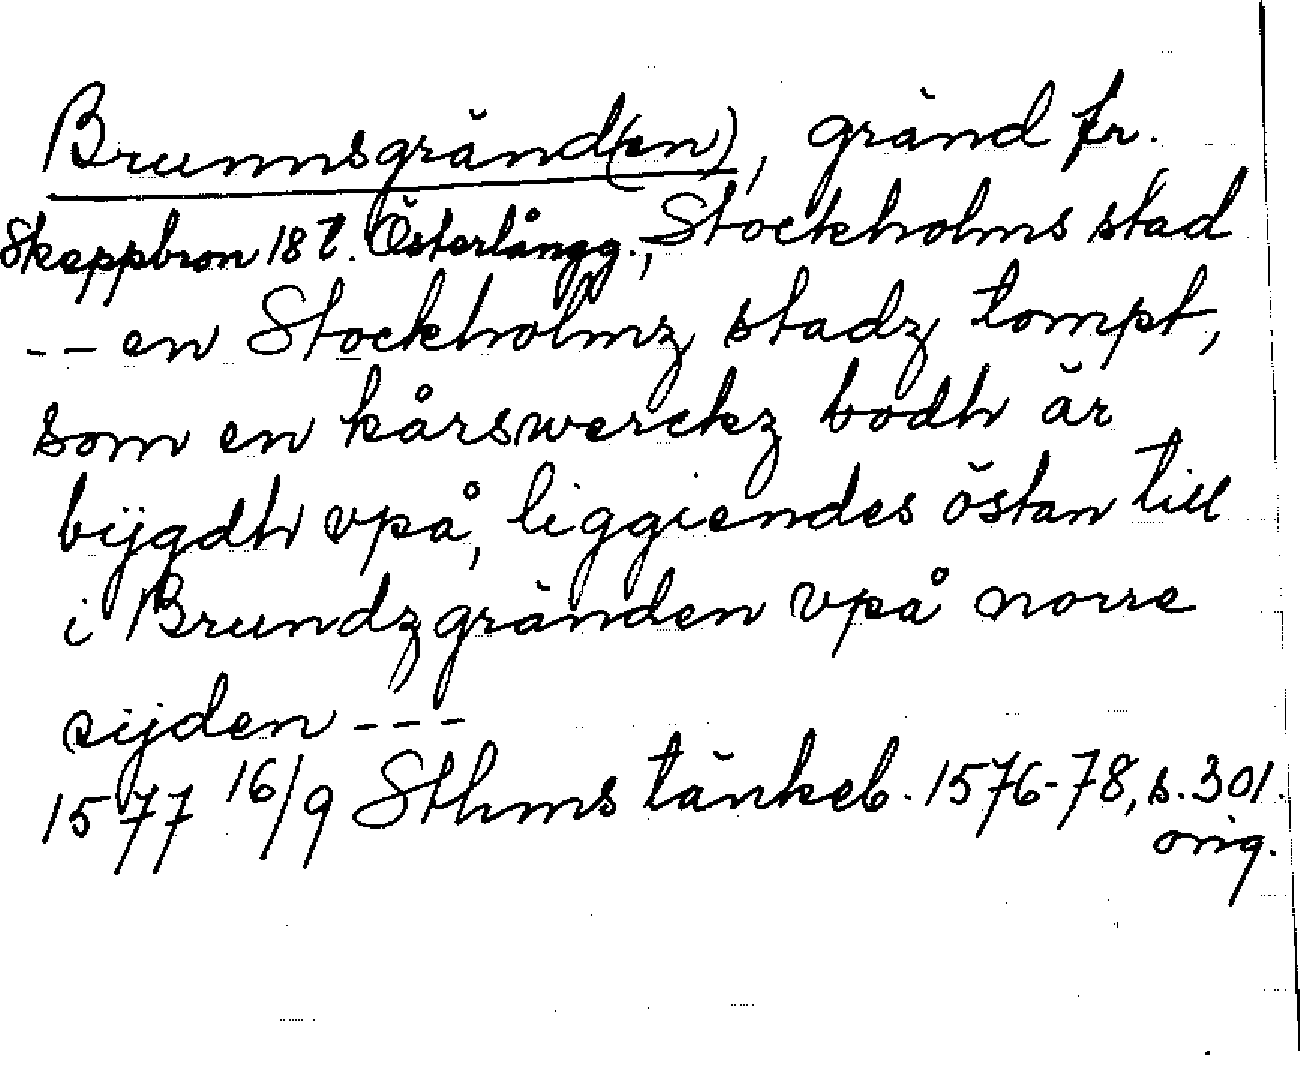 Brunnsgränd(en), gränd fr.
Skeppbron 18 t. Österlångg., Stockholms stad
-- en Stockholmz stadz tompt,
som en kårswerckz bodh är
bijgdh vpå, liggiendes östan till
i Brundzgränden vpå norre
sijden ---
1577 16/9 Sthms tänkeb. 1576-78, s. 301.
orig.